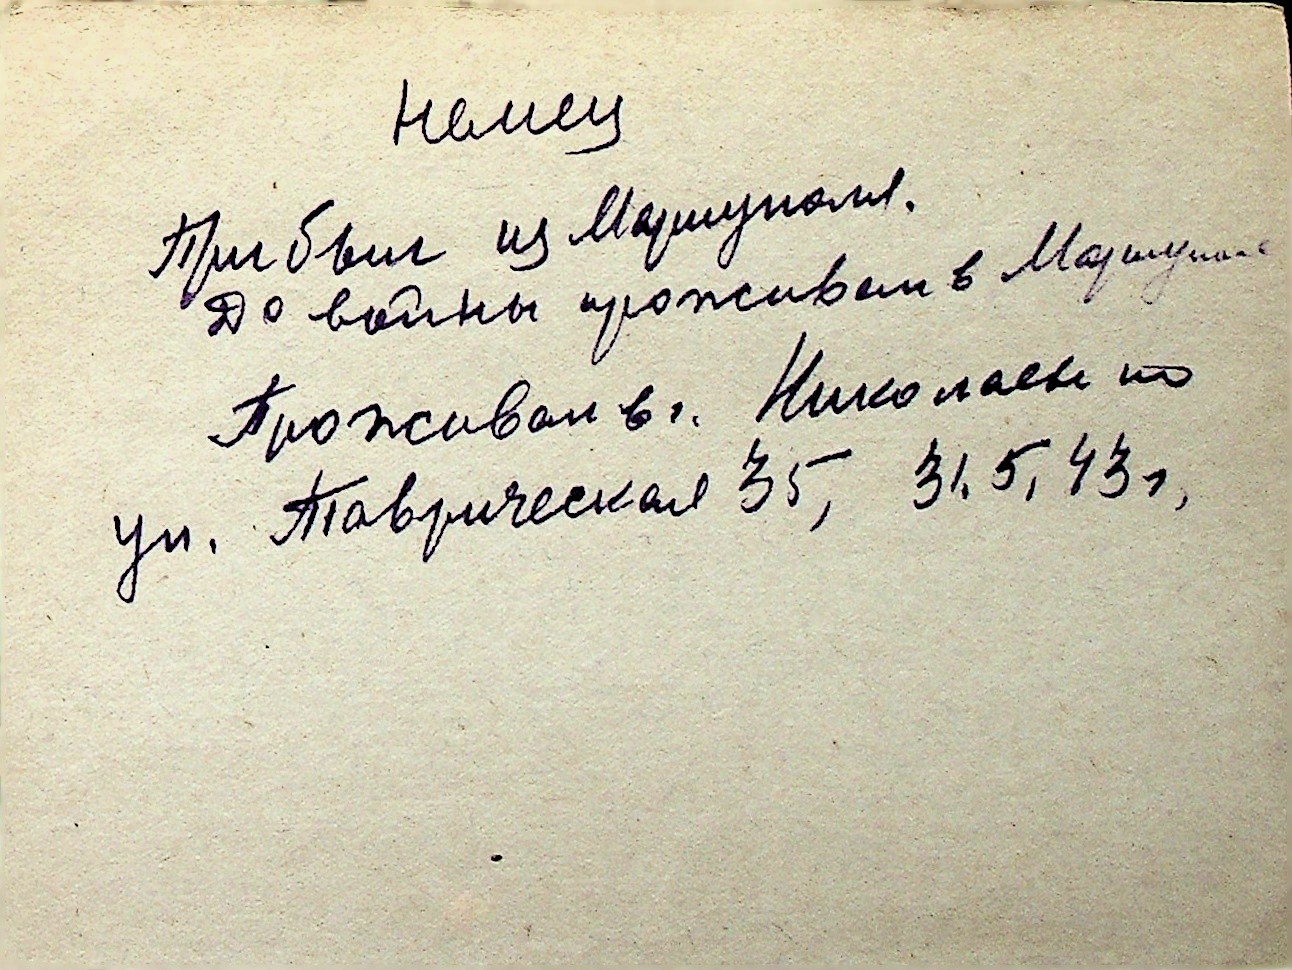 немец
Прибыл из Мариуполя.
До войны проживал в Мариуполе
Проживал в г. Николаеве по
ул. Таврическая 35, 31.5.43 г.